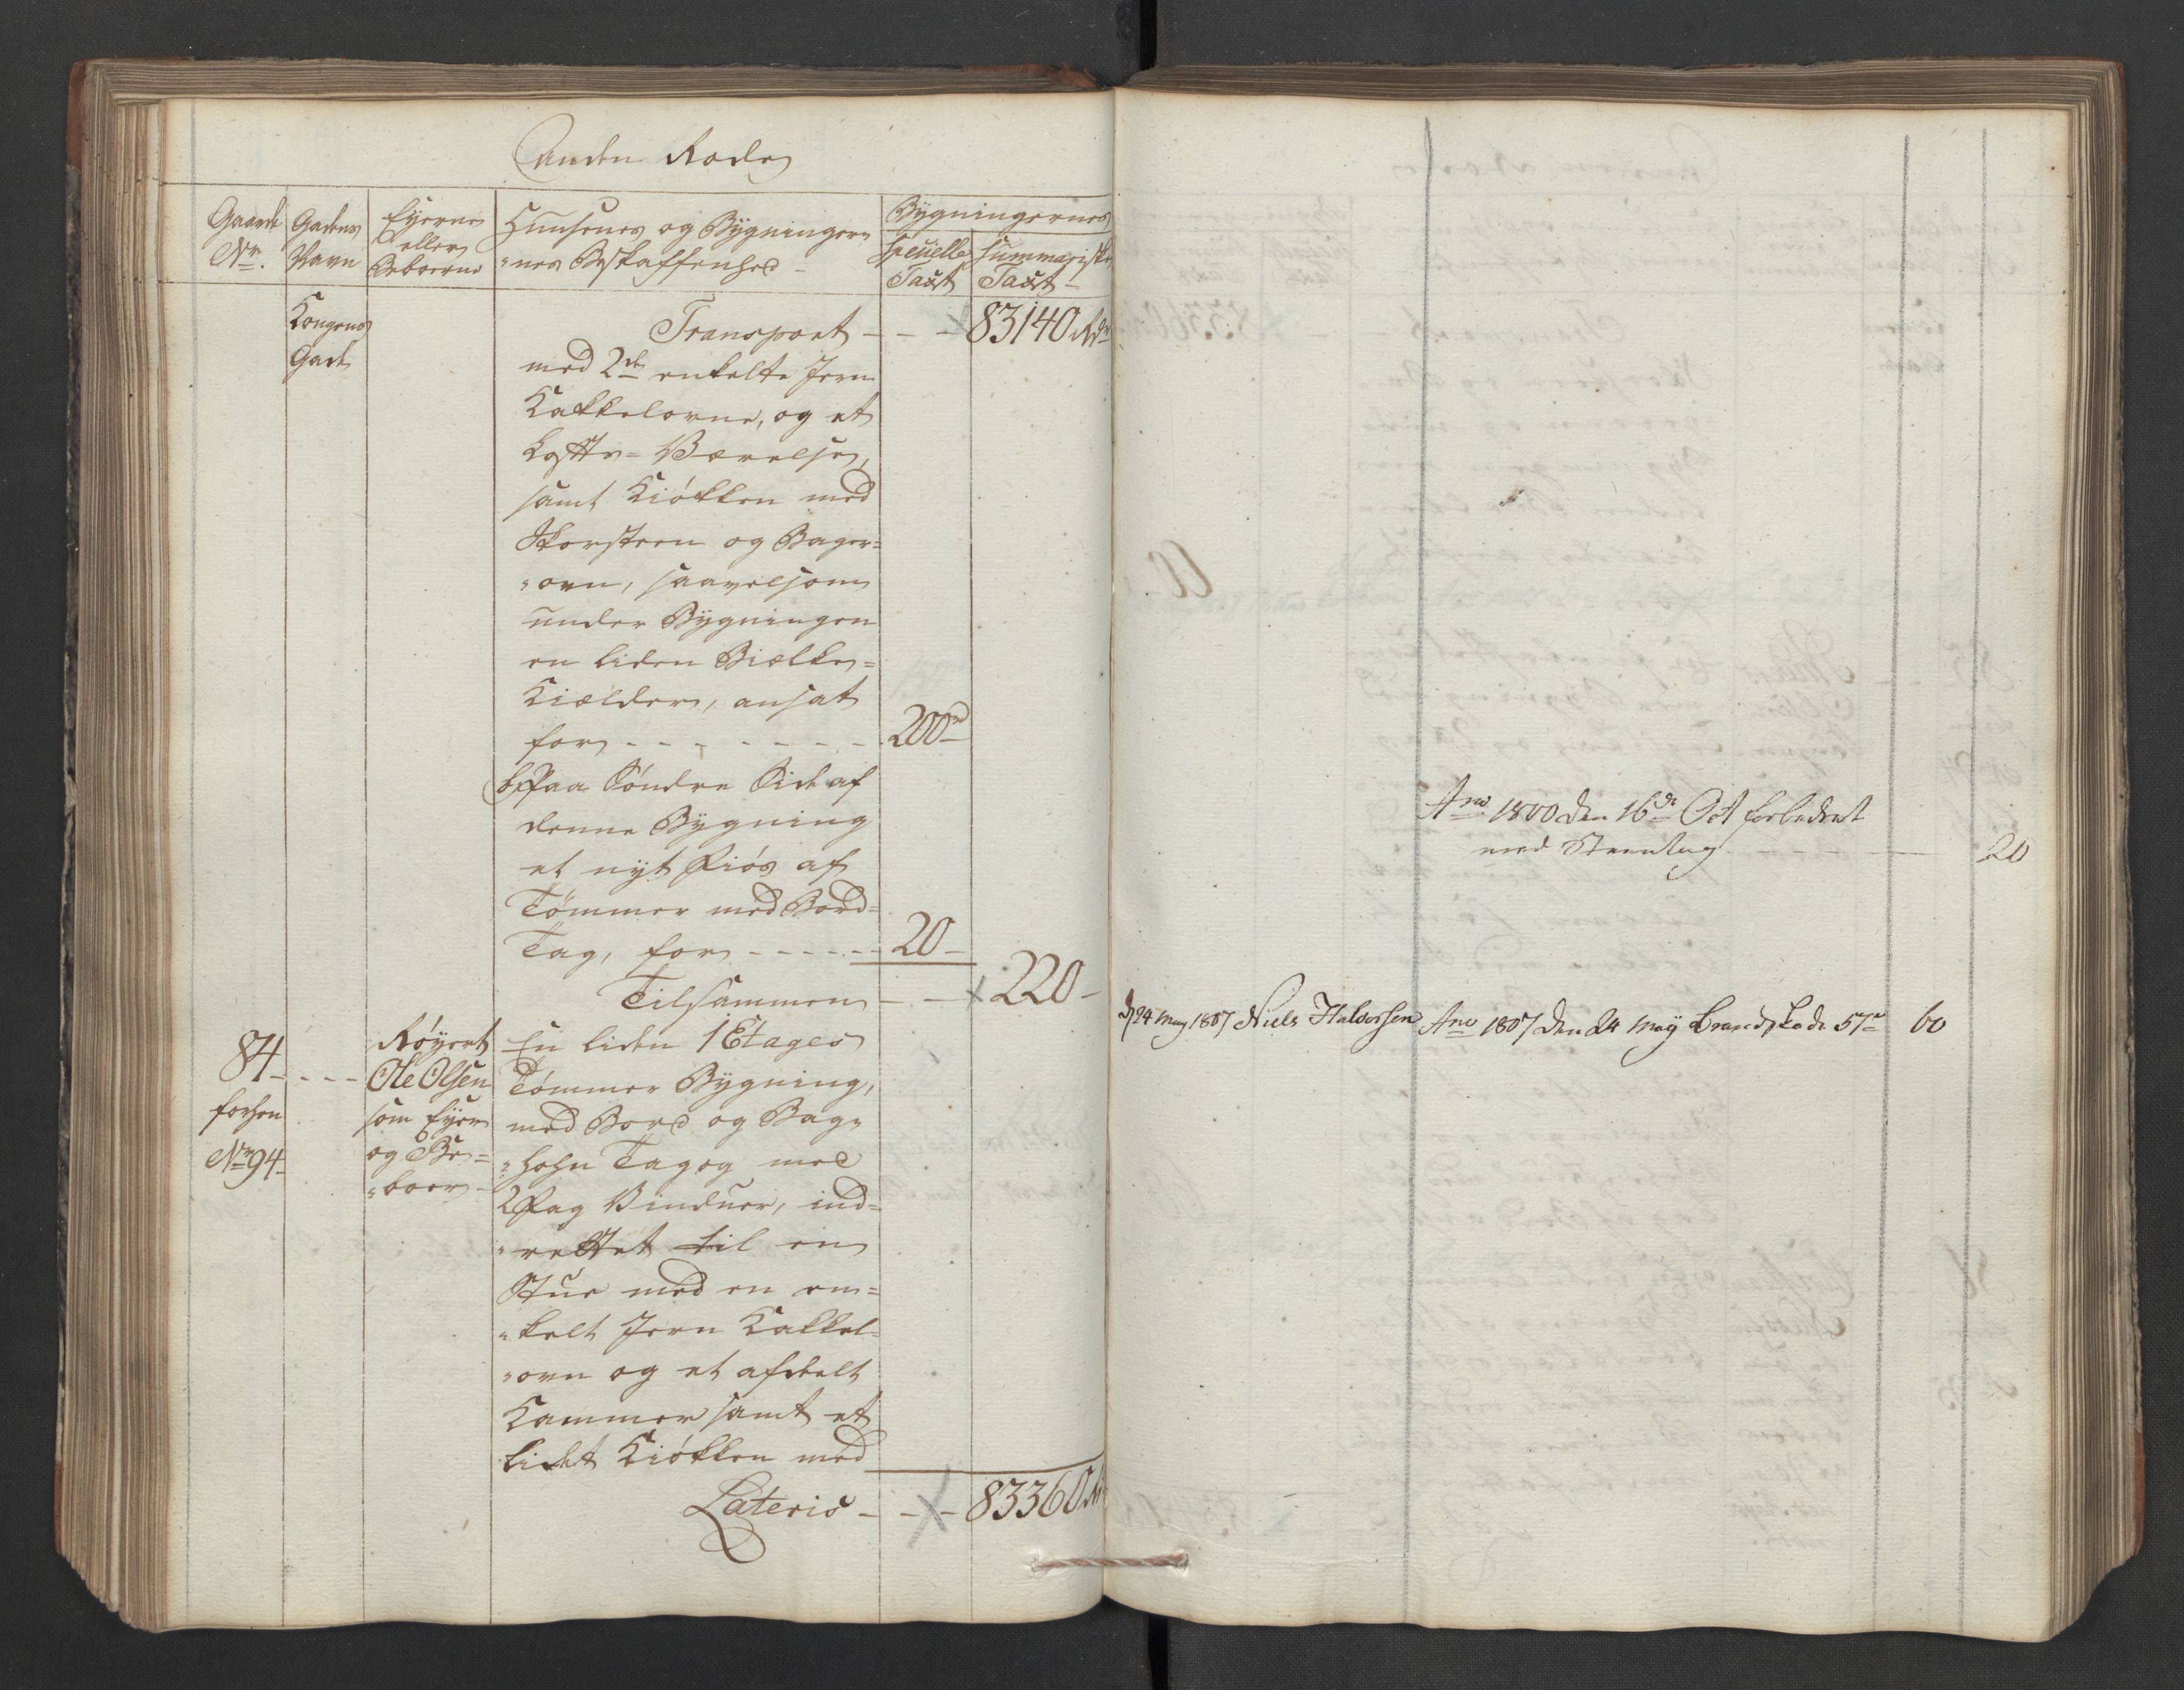 Anden Rode
Gaarde Nr.
Gadens Navn
Eyerne eller Beboerne
Huusenes og Bygninger=
=nes Beskaffenhed
Bygningernes
Specielle Taxt
Summariske Taxt
Kongens
Gade
Transport - - - 83140 Rdr
med 2de enkelte Jern
Kakkelovne, og et
Lofts= Værelse,
samt Kiökken med
Skorsteen og Bager=
=ovn, saavelsom
under Bygningen
en liden Bielke=
Kielder, ansat
for - - - - - - - 200 rd
b, Paa Söndre Side af
denne Bygning
et nyt Fiös af
Tömmer med Bord=
Tag, for - - - - - 20 -
Tilsammen - - 220 -
84 - - - -
forhen
Nr 94
Röyert
Ole Olsen
som Eyer
og Be=
=boer
En liden 1 Etages
Tömmer Bygning,
med Bord og Bag=
=hohn Tag og med
2 Fag Vinduer, ind=
=rettet til en
Stue med en en=
=kelt Jern Kakkel=
=ovn og et afdeelt
Kammer samt et
lidet Kiökken med
Lateris - - - 83360 Rd
Ano 1800 den 16de Oct forbedret
med Steentag - - - - 20
d 24 May 1807 Niels Halvorsen Ano 1807 den 24 May Brandskade 57r 60